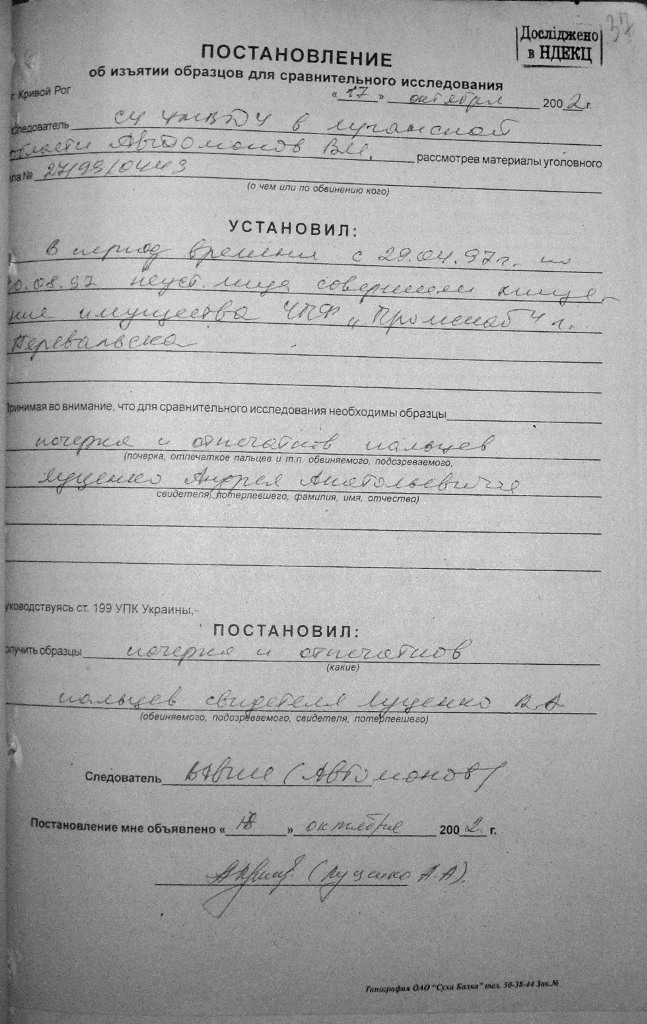 37
Досліджено
в НДЕКЦ
ПОСТАНОВЛЕНИЕ
об изъятии образцов для сравнительного исследования
г. Кривой Рог
«17» октября 2002 г.
следователь СУ УМВДУ в Луганской
области Автономов В.И. рассмотрев материалы уголовного
дела № 27/99/0443
(о чем или по обвинению кого)
УСТАНОВИЛ:
в период времени с 29.04.97г. по
.08.97 неуст. лица совершили хище-
ние имущества ЧПФ „Промснаб" г.
Перевальска
Принимая во внимание, что для сравнительного исследования необходимы образцы
почерка и отпечатков пальцев
(почерка, отпечатков пальцев и т.п. обвиняемого, подозреваемого,
Луценко Андрея Анатольевича
свидетеля, потерпевшего, фамилия, имя, отчество)
руководствуясь ст. 199 УПК Украины,-
ПОСТАНОВИЛ:
получить образцы почерка и отпечатков
(какие)
пальцев свидетеля Луценко А.А
(обвиняемого, подозреваемого, свидетеля, потерпевшего)
Следователь (Автономов)
Постановление мне объявлено « » октября 2002 г.
(Луценко А.А).
Типография ОАО "Суха Балка" тел. 50-38-44 Зак.№